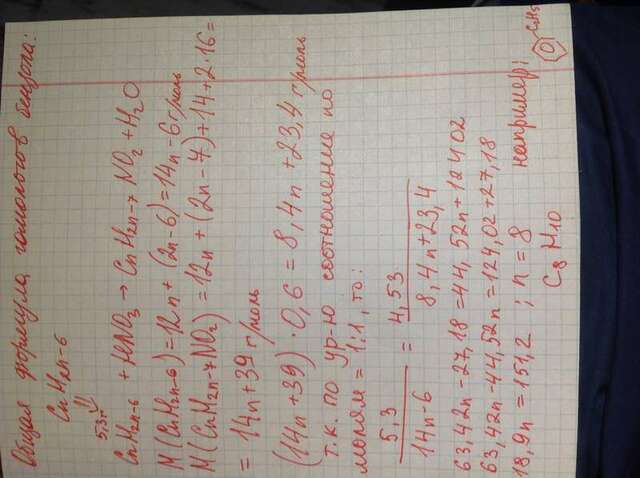 Общая формула гомологов бензола:
CnH2n-6
5,3г
CnH2n-6 + HNO3 → CnH2n-7NO2 + H2O
M(CnH2n-6) = 12n + (2n-6) = 14n-6 г/моль
M(CnH2n-7NO2) = 12n + (2n-7) + 14 + 2·16 =
= 14n + 39 г/моль
(14n+39)·0,6 = 8,4n + 23,4 г/моль
Т.к. по ур-ю соотношение по
молям = 1:1, то:
5,3 / 14n-6 = 4,53 / 8,4n+23,4
63,42n - 27,18 = 44,52n + 124,02
63,42n - 44,52n = 124,02 + 27,18
18,9n = 151,2 ; n = 8 например:
C8H10 C2H5